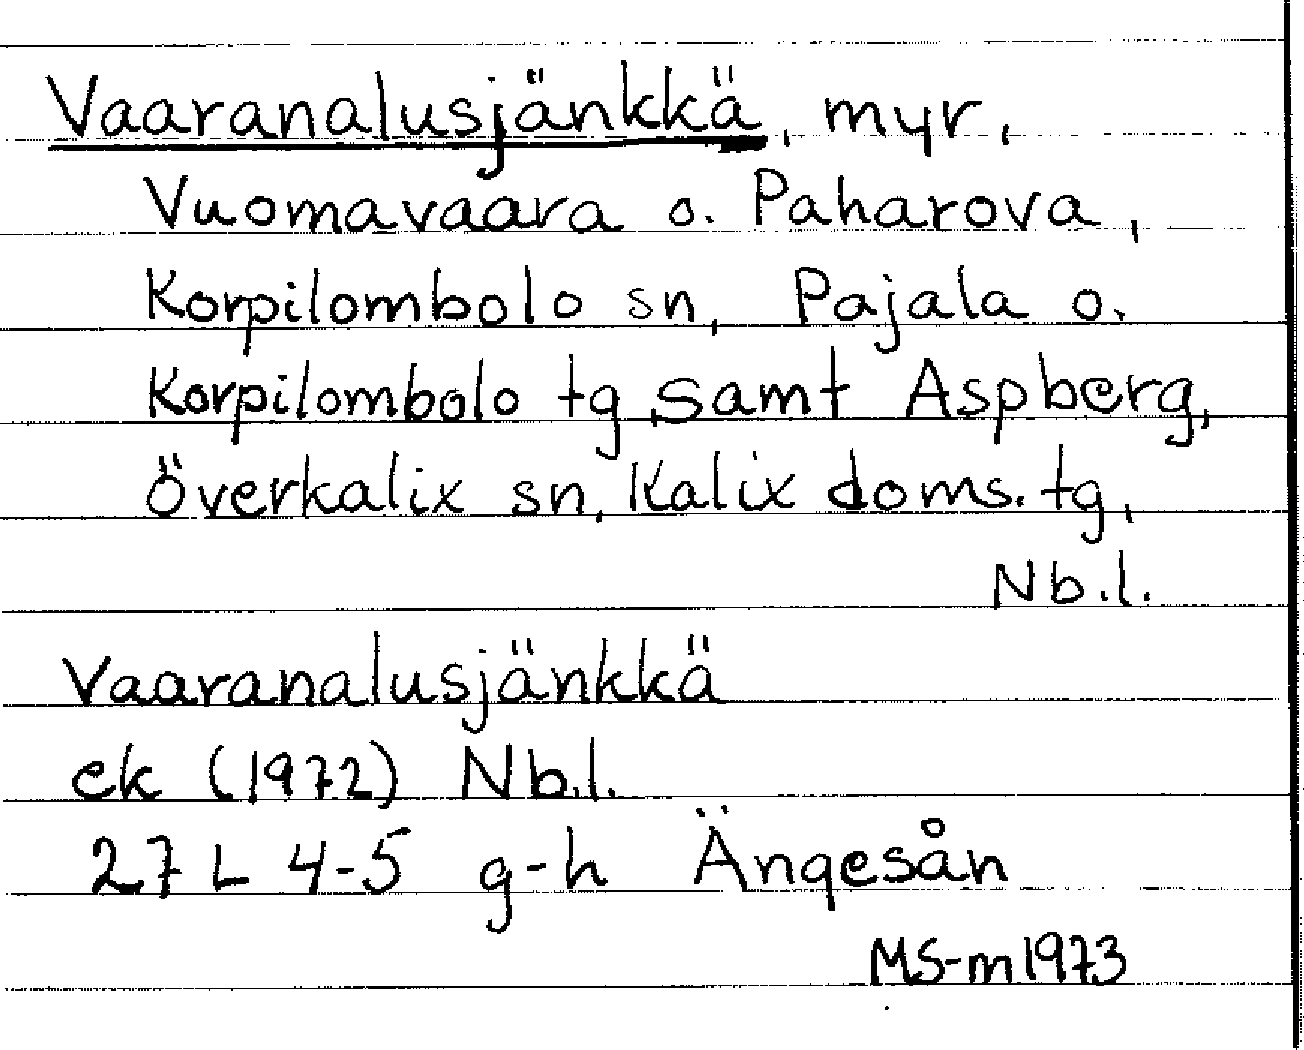 Vaaranalusjänkkä, myr,
Vuomavaara o. Paharova,
Korpilombolo sn, Pajala o.
Korpilombolo tg, samt Aspberg,
Överkalix sn, Kalix doms. tg,
Nb.l.
Vaaranalusjänkkä
ek (1972) Nb.l.
27 L 4-5 g-h Ängesån
MS-m1973